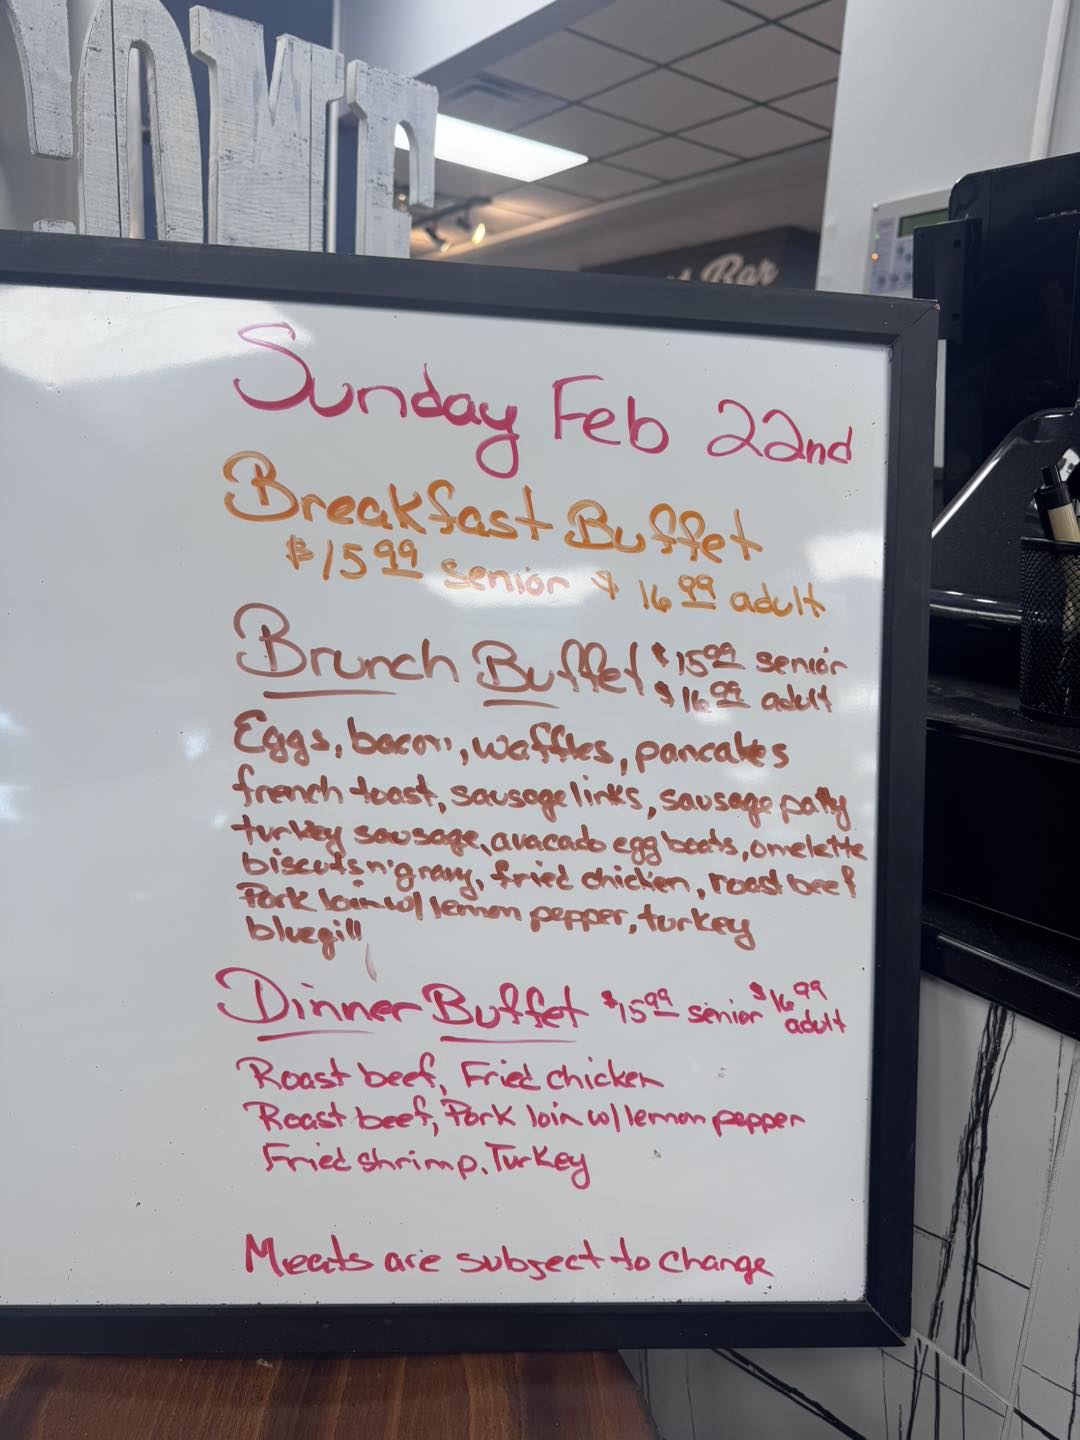 COME
Bar
Sunday Feb 22nd
Breakfast Buffet
$15.99 senior $16.99 adult
Brunch Buffet $15.99 senior
$16.99 adult
Eggs, bacon, waffles, pancakes
french toast, sausage links, sausage patty
turkey sausage, avacado egg boats, omelette
biscuts n' gravy, fried chicken, roast beef
Pork loin w/ lemon pepper, turkey
bluegill
Dinner Buffet $15.99 senior $16.99
adult
Roast beef, Fried chicken
Roast beef, Pork loin w/ lemon pepper
Fried shrimp, Turkey
Meats are subject to change